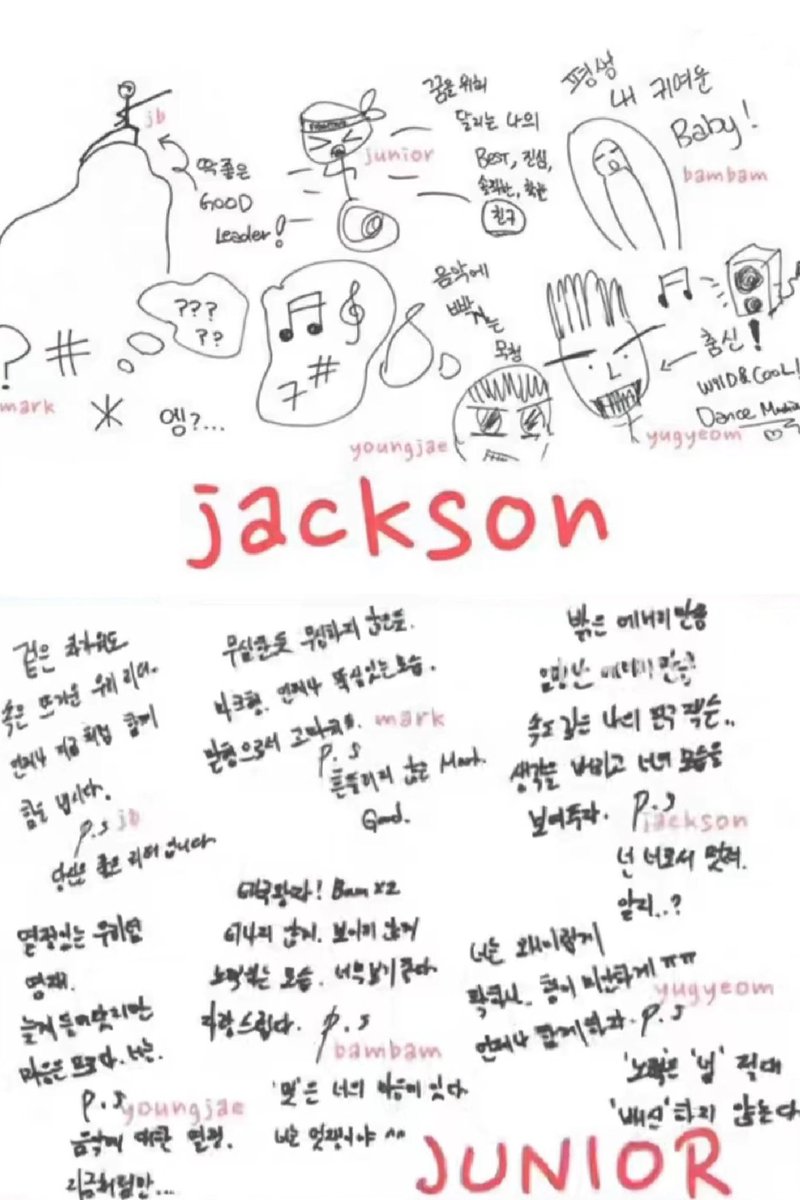 jb
딱좋은
GOOD
Leader!
꿈을위해
달리는 나의
junior
BEST, 진심,
솔직한, 착한
친구
평생
내 귀여운
Baby!
bambam
???
??
?
#
mark
엥?...
7
#
음악에
빠지는
목청
youngjae
춤신!
WILD&COOL!
Dance
yugyeom
jackson
겉은 차가워도
속은 뜨거운 우리 리더.
언제나 지금처럼 함께
힘을 냅시다.
P.S
jb
당신은 좋은 리더 입니다
무심한듯 무심하지 않은듯.
마크형. 언제나 뚝심있는모습.
맏형으로서 고마워요.
mark
P.S
흔들리지 않은 Mark.
Good.
밝은 에너지만큼
속도 깊은 나의 친구 잭슨..
생각을 버리고 너의 모습을
보여주라. P.S
jackson
넌 너로서 멋져.
알지..?
열정있는 우리의
영재.
늦게 들어왔지만
마음은 프로다. 너는.
P.S
youngjae
음악에 대한 열정.
지금처럼만...
태국왕자! Bam x2
티나지 않게. 보이지 않게
노력하는 모습. 너무보기좋다.
자랑스럽다. P.S
bambam
'멋'은 너의 마음에 있다
너는 멋쟁이야 ^^
너는 왜이렇게
착하니.. 형이 미안하게 ㅠㅠ
yugyeom
언제나 함께하자. P.S
'노력'은 '널' 절대
'배신'하지 않는다
JUNIOR